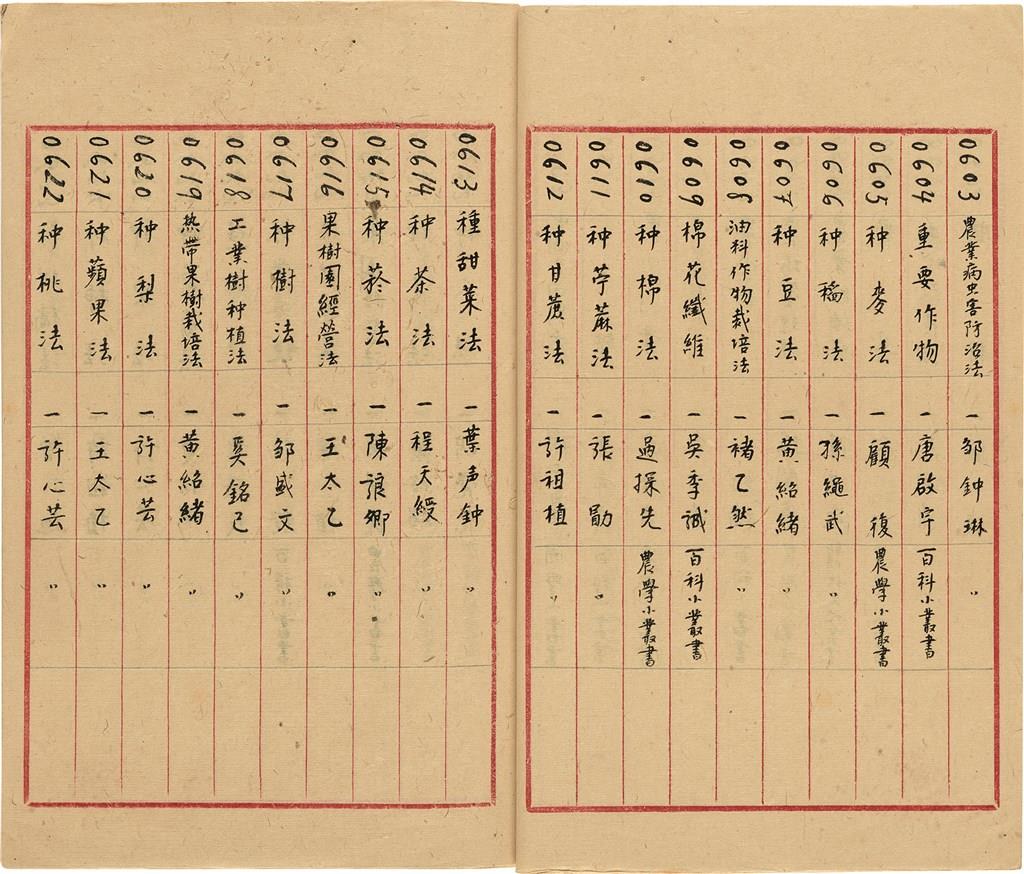 0603 農業病虫害防治法 一 邹鈡琳 〃
0604 重要作物 一 唐啟宇 百科小叢書
0605 种麥法 一 顧復 農學小叢書
0606 种稻法 一 孫繩武 〃
0607 种豆法 一 黄紹緒 〃
0608 油料作物栽培法 一 褚乙然 〃
0609 棉花纖維 一 吳季誠 百科小叢書
0610 种棉法 一 過探先 農學小叢書
0611 种苧蔴法 一 張勛 〃
0612 种甘蔗法 一 許祖植 〃
0613 種甜菜法 一 葉声鈡 〃
0614 种茶法 一 程天綬 〃
0615 种菸法 一 陳諒卿 〃
0616 果樹園經營法 一 王太乙 〃
0617 种樹法 一 邹盛文 〃
0618 工業樹种植法 一 奚銘已 〃
0619 热帶果樹栽培法 一 黄紹緒 〃
0620 种梨法 一 許心芸 〃
0621 种蘋果法 一 王太乙 〃
0622 种桃法 一 許心芸 〃